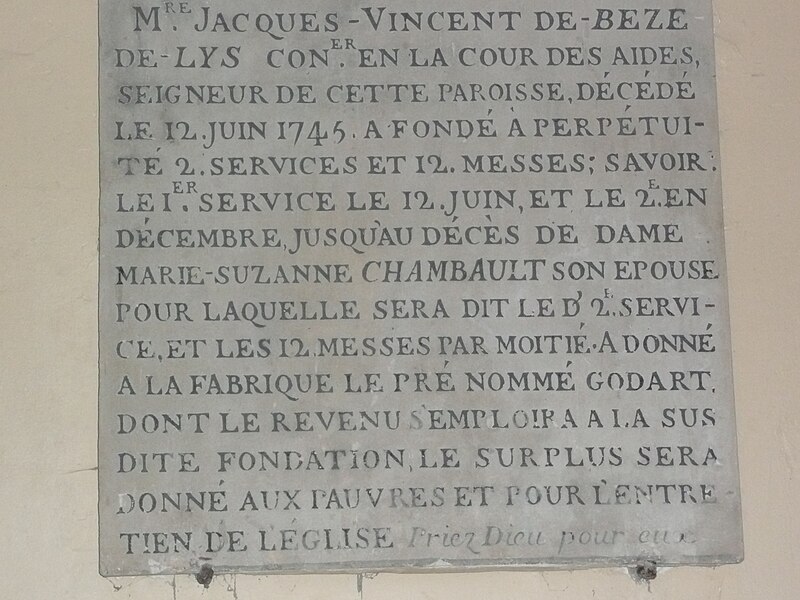 M.RE JACQUES-VINCENT DE-BEZE
DE-LYS CON.ER EN LA COUR DES AIDES,
SEIGNEUR DE CETTE PAROISSE, DÉCÉDÉ
LE 12.JUIN 1745. A FONDÉ À PERPÉTUI-
TÉ 2.SERVICES ET 12.MESSES; SAVOIR:
LE 1.ER SERVICE LE 12.JUIN, ET LE 2.E EN
DÉCEMBRE, JUSQU'AU DÉCÈS DE DAME
MARIE-SUZANNE CHAMBAULT SON EPOUSE
POUR LAQUELLE SERA DIT LE D' 2.E SERVI-
CE, ET LES 12.MESSES PAR MOITIÉ. A DONNÉ
A LA FABRIQUE LE PRÉ NOMMÉ GODART,
DONT LE REVENU S'EMPLOIRA A LA SUS
DITE FONDATION, LE SURPLUS SERA
DONNÉ AUX PAUVRES ET POUR L'ENTRE-
TIEN DE L'ÉGLISE Priez Dieu pour eux